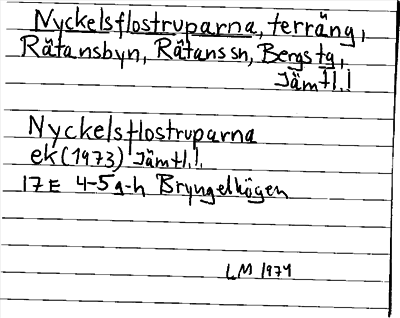 Nyckelsflostruparna, terräng,
Rätansbyn, Rätans sn, Bergs tg,
Jämtl.l
Nyckelsflostruparna
ek (1973) Jämtl.l.
17E 4-5g-h Bryngelhögen
LM 1974